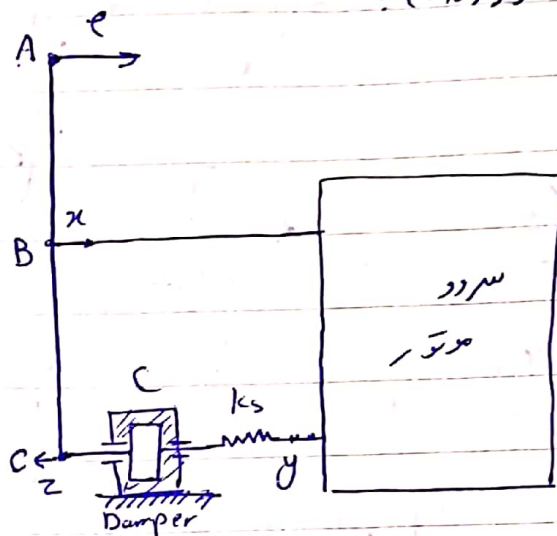 e
A
x
B
سروو
موتور
C
ks
C
z
y
Damper